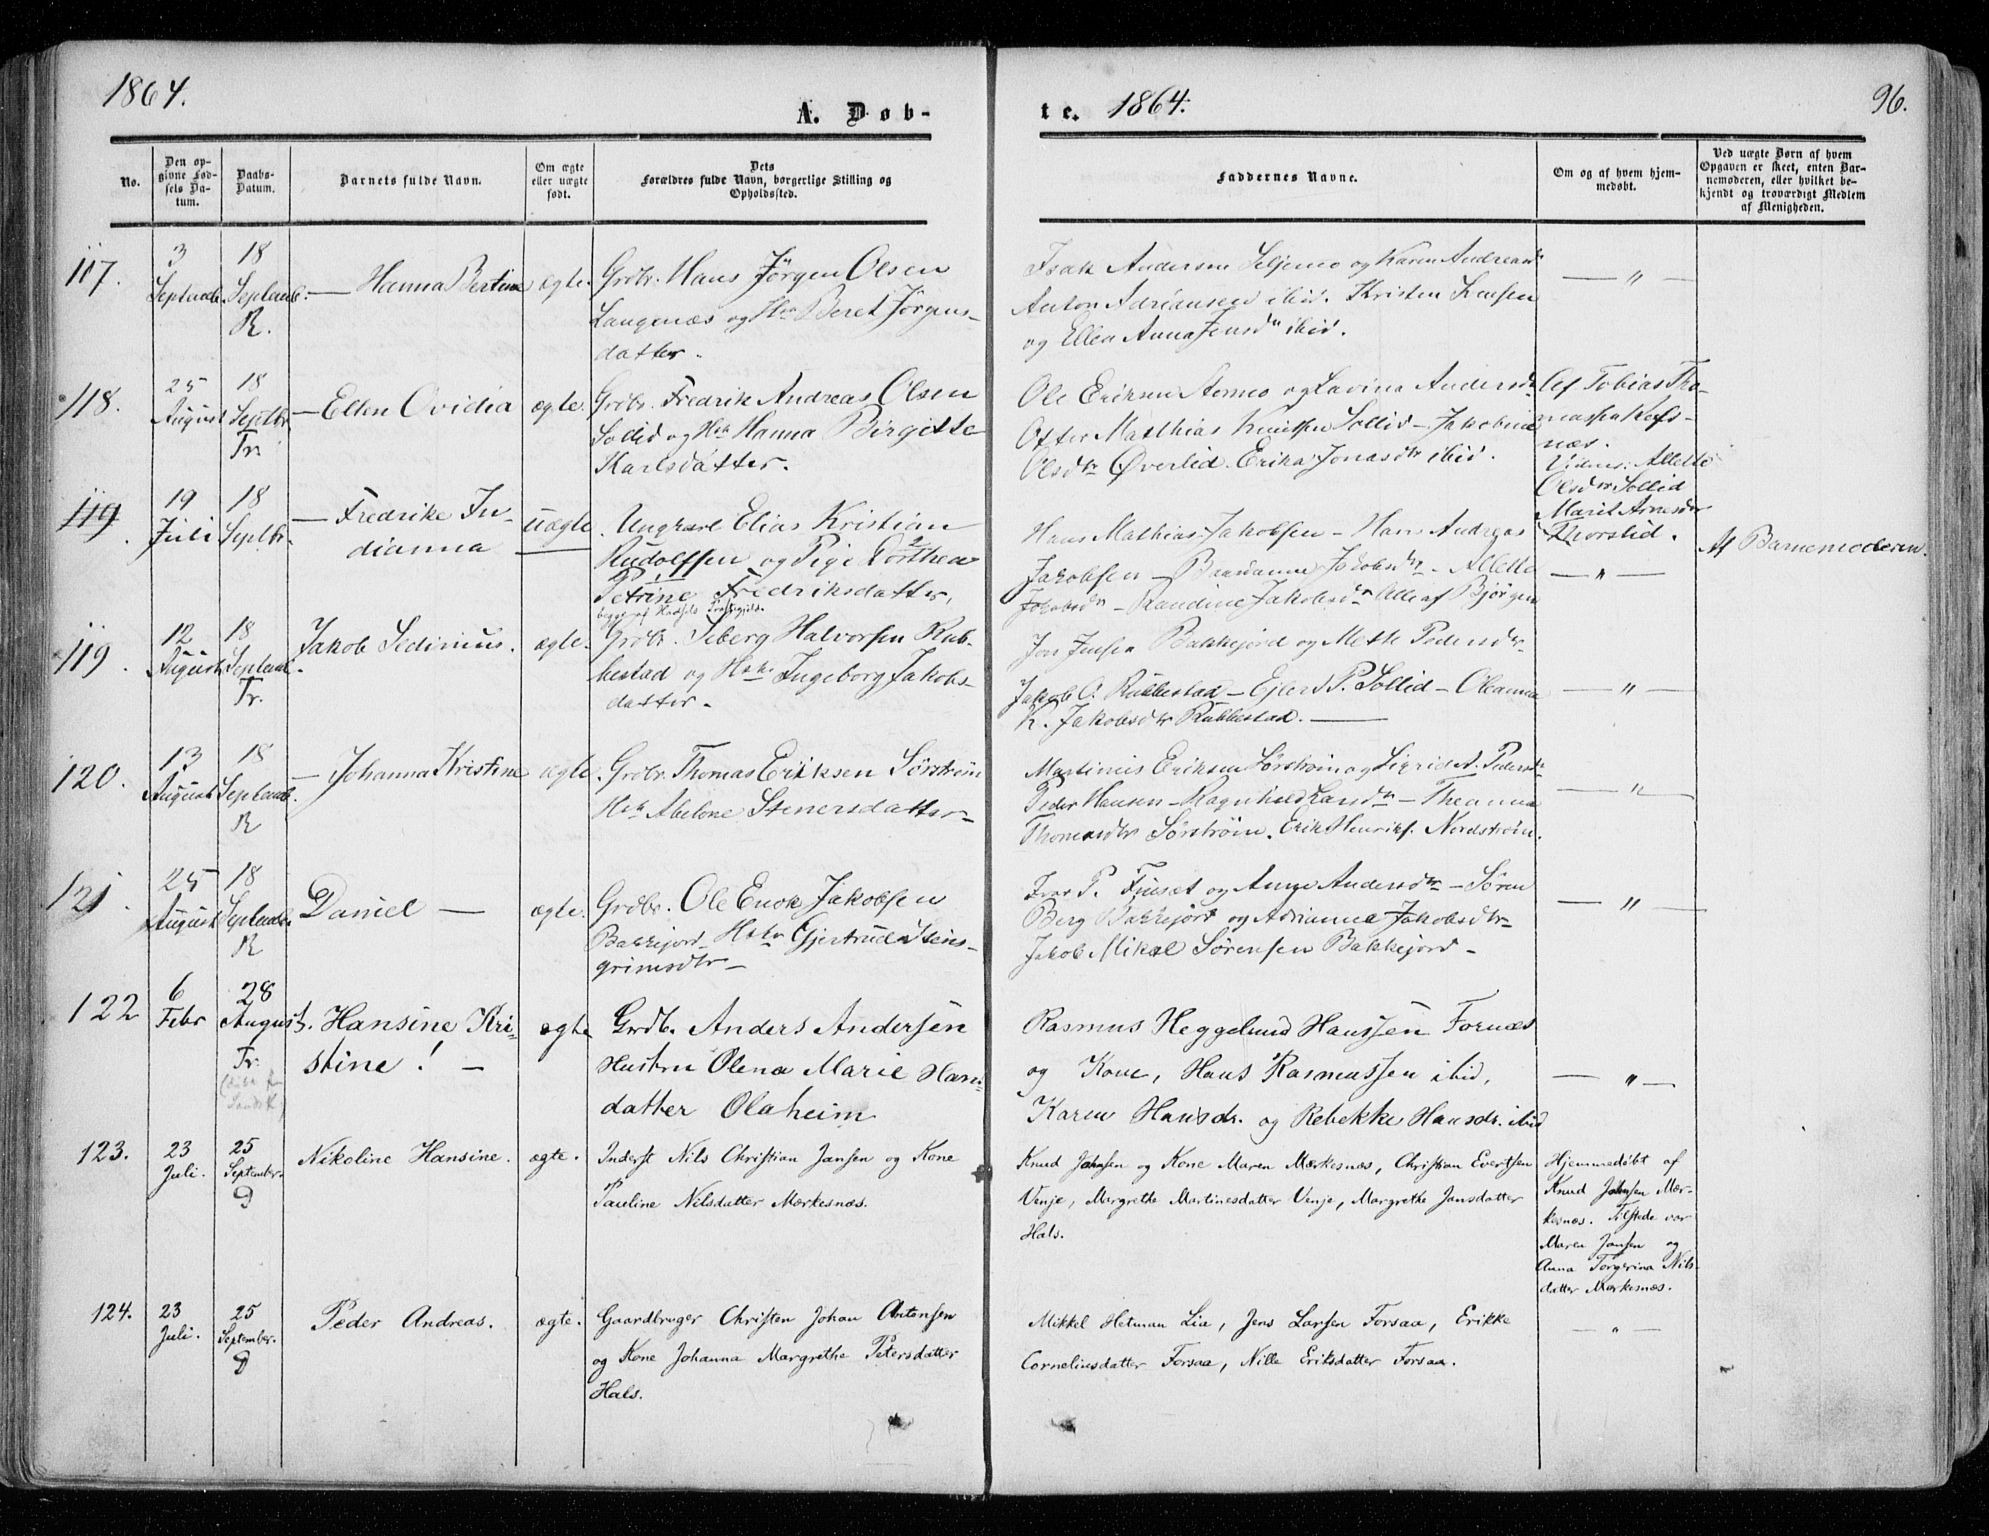 1864.
A. Døb-
te. 1864.
96.
No.
Den op-
givne Fød-
sels Da-
tum.
Daabs-
Datum.
Barnets fulde Navn.
Om ægte
eller uægte
født.
Dets
Forældres fulde Navn, borgerlige Stilling og
Opholdssted.
Faddernes Navne.
Om og af hvem hjem-
medøbt.
Ved uægte Børn af hvem
Opgaven er skeet, enten Bar-
nemoderen, eller hvilket be-
kjendt og troværdigt Medlem
af Menigheden.
117.
3
Septemb.
18
Septemb.
R.
— Hanna Bertine
ægte.
Grdbr. Hans Jörgen Olsen
Langenæs og Hr Beret Jörgens-
datter.
Isak Andersen Seljemo og Karen Andreasdr
Anton Adriansen ibid. Kristen Jensen
og Ellen Anna Jensdr ibid.
— " —
118.
25
August
18
Septbr
Tr.
— Ellen Ovidia
ægte.
Grdbr. Fredrik Andreas Olsen
Sollid og Hstr Hanna Birgitte
Karlsdatter.
Ole Eriksen Aemo og Lavina Andersdr
Otter Matthias Knutsen Sollid — Jakobina
Olsdtr Øverlid. Erika Jonasdtr ibid.
Af Tobias Tho-
massen
næs.
Vidner: Allette
Olsdtr Sollid
Marit Arnesdtr
Thorslid.
119.
19
Juli
18
Septbr.
— Fredrike In-
dianna
uægte
Ungkarl Elias Kristian
Rudolfsen og Pige Dorthea
Petrine Fredriksdatter,
begge af Hadsels Præstegjeld.
Hans Mathias Jakobsen — Hans Andreas
Jakobsen — Jakobsdtr — Allette
Jakobsdtr — Randine Jakobsdtr Alle af Bjørgen
— " —
Af Barnemoderen.
119.
12
August
18
Septemb.
Tr.
Jakob Sedinius.
ægte.
Grdbr. Seberg Halvorsen Rub-
bestad og Hstr Ingeborg Jakobs-
datter.
Jon Jensen Bakkejord og Mette Pedersdtr
Jakob O. Rubbestad — Ejlert P. Sollid — Oleanna
K. Jakobsdtr Rubbestad. —
— " —
120.
13
August
18
Septemb.
R
— Johanna Kristine
ægte.
Grdbr. Thomas Eriksen Sörström
Hstr Abelone Stenersdatter —
Martinus Eriksen Sörström og Sigrid A. Pedersdtr
Peder Hansen — Ragnhild Larsdtr — Theanna
Thomasdtr Sörström. Erik Henriks. Nordström.
— " —
121.
25
August
18
Septemb.
R
Daniel —
ægte.
Grdbr. Ole Enok Jakobsen
Bakkejord Hstr Gjertrud Stein-
grimsdtr —
Ivar P. Finset og Anne Andersdtr — Sören
Berg Bakkejord og Adrianna Jakobsdtr
Jakob Mikal Sörensen Bakkejord —
— " —
122
6
Febr
28
August.
Tr.
Hansine Kri-
stine! —
ægte
Grdb. Anders Andersen
Hustru Olena Marie Hans-
datter Olaheim
Rasmus Heggelund Hanssen Fornæs
og Kone, Hans Rasmussen ibid,
Karen Hansdr. og Rebekke Hansdr. ibid
— " —
123.
23
Juli.
25
September.
Nikoline Hansine.
ægte.
Inderst Nils Christian Jansen og Kone
Pauline Nilsdatter Mærkesnæs.
Knud Johnsen og Kone Maren Mærkesnæs, Christian Evertsen
Venje, Margrethe Martinesdatter Venje, Margrethe Jansdatter
Hals.
Hjemmedøbt af
Knud Johnsen Mær-
kesnæs. Tilstede var
Maren Jansen og
Anna Torgerina Nils-
datter Mærkesnæs.
124.
23
Juli.
25
September.
Peder Andreas.
ægte.
Gaardbruger Christen Johan Antonsen
og Kone Johanna Margrethe Petersdatter
Hals.
Mikkel Hetman Lia, Jens Larsen Forsaa, Erikke
Corneliusdatter Forsaa, Nille Eriksdatter Forsaa.
— " —